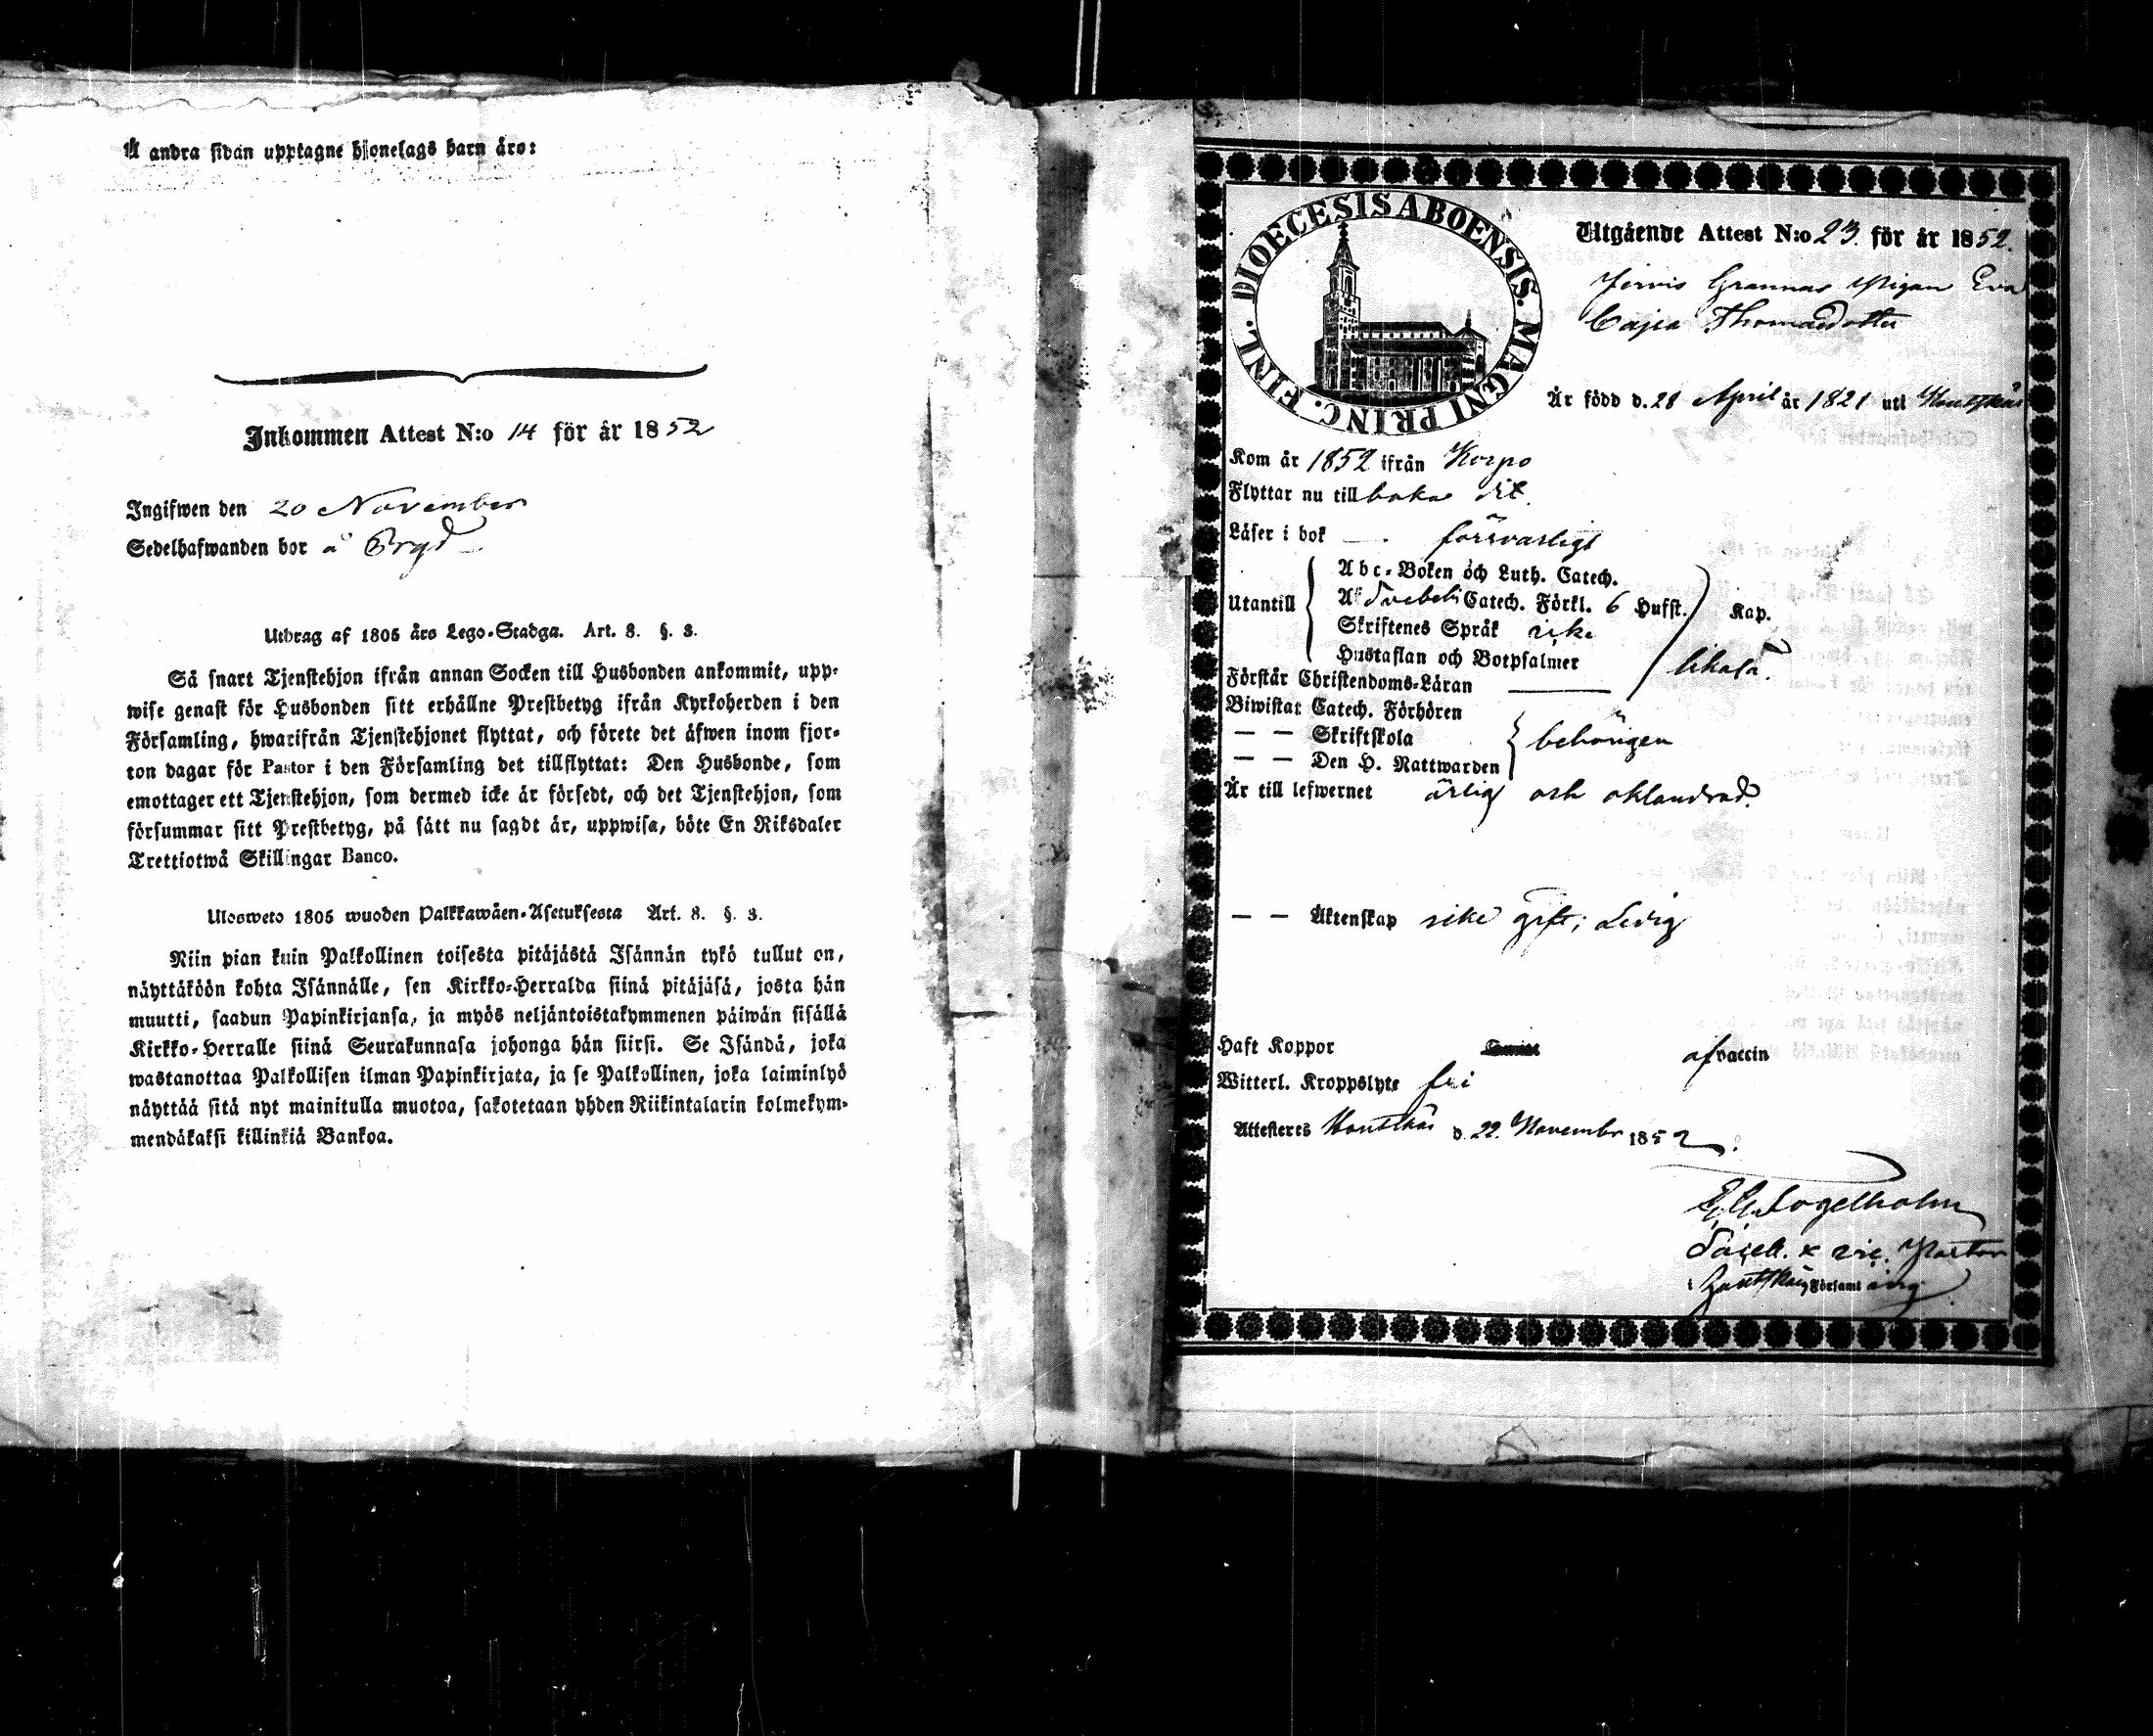 Å andra sidan upptagne hjonelags barn äro:
Inkommen Attest N:o 14 för år 1852
Ingifwen den 20 November
Sedelhafwanden bor å
Utdrag af 1805 års Lego-Stadga. Art. 8. §. 3.
Så snart Tjenstehjon ifrån annan Socken till Husbonden ankommit, upp-
wise genast för Husbonden sitt erhållne Prestbetyg ifrån Kyrkoherden i den
Församling, hwarifrån Tjenstehjonet flyttat, och förete det äfwen inom fjor-
ton dagar för Pastor i den Församling det tillflyttat: Den Husbonde, som
emottager ett Tjenstehjon, som dermed icke är försedt, och det Tjenstehjon, som
försummar sitt Prestbetyg, på sätt nu sagdt är, uppwisa, böte En Riksdaler
Trettiotwå Skillingar Banco.
Ulosweto 1805 wuoden Palkkawäen-Asetuksesta Art. 8. §. 3.
Niin pian kuin Palkollinen toisesta pitäjästä Isännän tykö tullut on,
näyttäköön kohta Isännälle, sen Kirkko-Herralda siinä pitäjäsä, josta hän
muutti, saadun Papinkirjansa, ja myös neljäntoistakymmenen päiwän sisällä
Kirkko-Herralle siinä Seurakunnasa johonga hän siirsi. Se Isändä, joka
wastanottaa Palkollisen ilman Papinkirjata, ja se Palkollinen, joka laiminlyö
näyttää sitä nyt mainitulla muotoa, sakotetaan yhden Riikintalarin kolmekym-
mendäkaksi killinkiä Bankoa.
DIOECESIS ABOENSIS. MAGNI PRINC. FINL.
Utgående Attest N:o 23. för år 1852.
Grannas Pigan Eva
Cajsa Thomasdotter
Är född d. 28 April år 1821 uti Houtskär
Kom år 1852 ifrån Korpo
Flyttar nu till baka dit.
Läser i bok — försvarligt
Utantill
Abc-Boken och Luth. Catech.
Af Svebeli Catech. Förkl. 6 Hufst. Kap.
Skriftenes Språk icke
Hustaflan och Botpsalmer
Förstår Christendoms-Läran — likaså.
Biwistat Catech. Förhören
— — Skriftskola behörigen
— — Den H. Nattwarden
Är till lefwernet ärlig och oklandrad.
— — Äktenskap icke gift; Ledig
Haft Koppor af vaccin
Witterl. Kroppslyte fri
Attesteres Houtskär d. 22. Novembr 1852.
Fogelholm
Sacell. & vic. Pastor
i Houtskär Församling